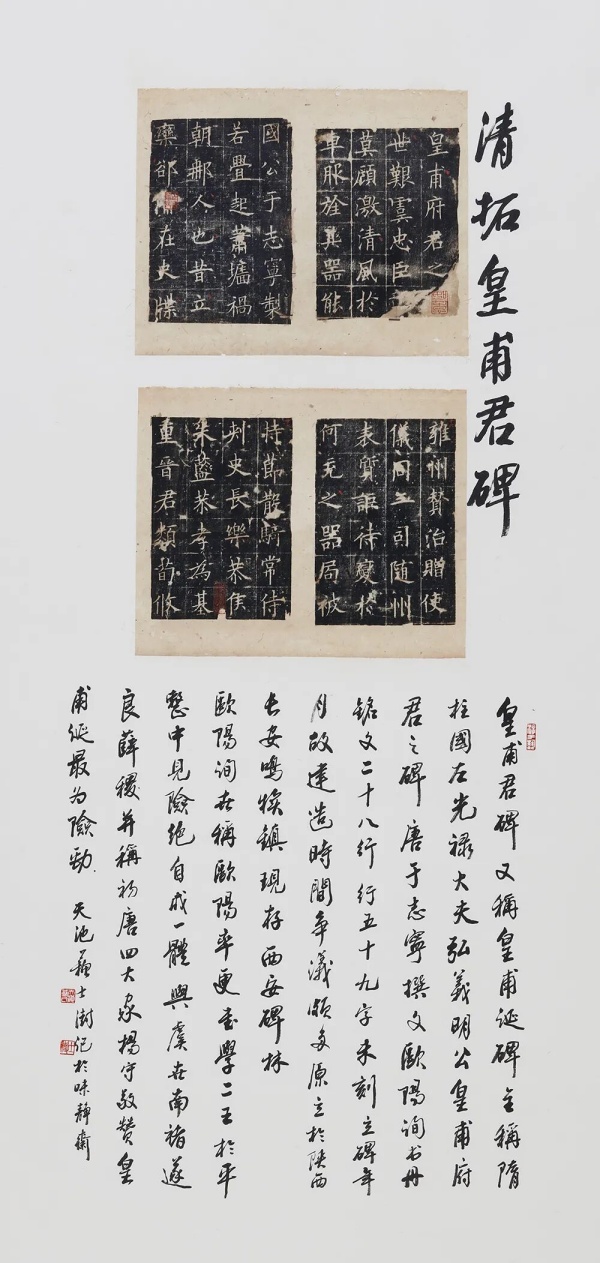 清拓皇甫君碑
皇甫府君之
世艱虞忠臣
莫顧激清風於
車服旌其器能
國公于志寧製
若疊起蕭墻禍
朝那人也昔立
欒郤在史牒
雍州贊治贈使
儀同三司隨州
表質詡待變於
何充之器局被
持節散騎常侍
刾史長樂恭侯
朱藍恭孝為基
重晉君類韵脩
皇甫君碑又稱皇甫诞碑全稱隋
柱國左光禄大夫弘義明公皇甫府
君之碑 唐于志寧撰文歐陽询书丹
銘文二十八行行五十九字未刻立碑年
月故建造時間争議頗多原立於陕西
长安鳴犊鎮現存西安碑林
歐陽询世稱歐陽率更書學二王於平
整中見險绝自成一體與虞世南褚遂
良薛稷并稱初唐四大家楊守敬赞皇
甫诞最为險勁 天池士澍记於味静齋